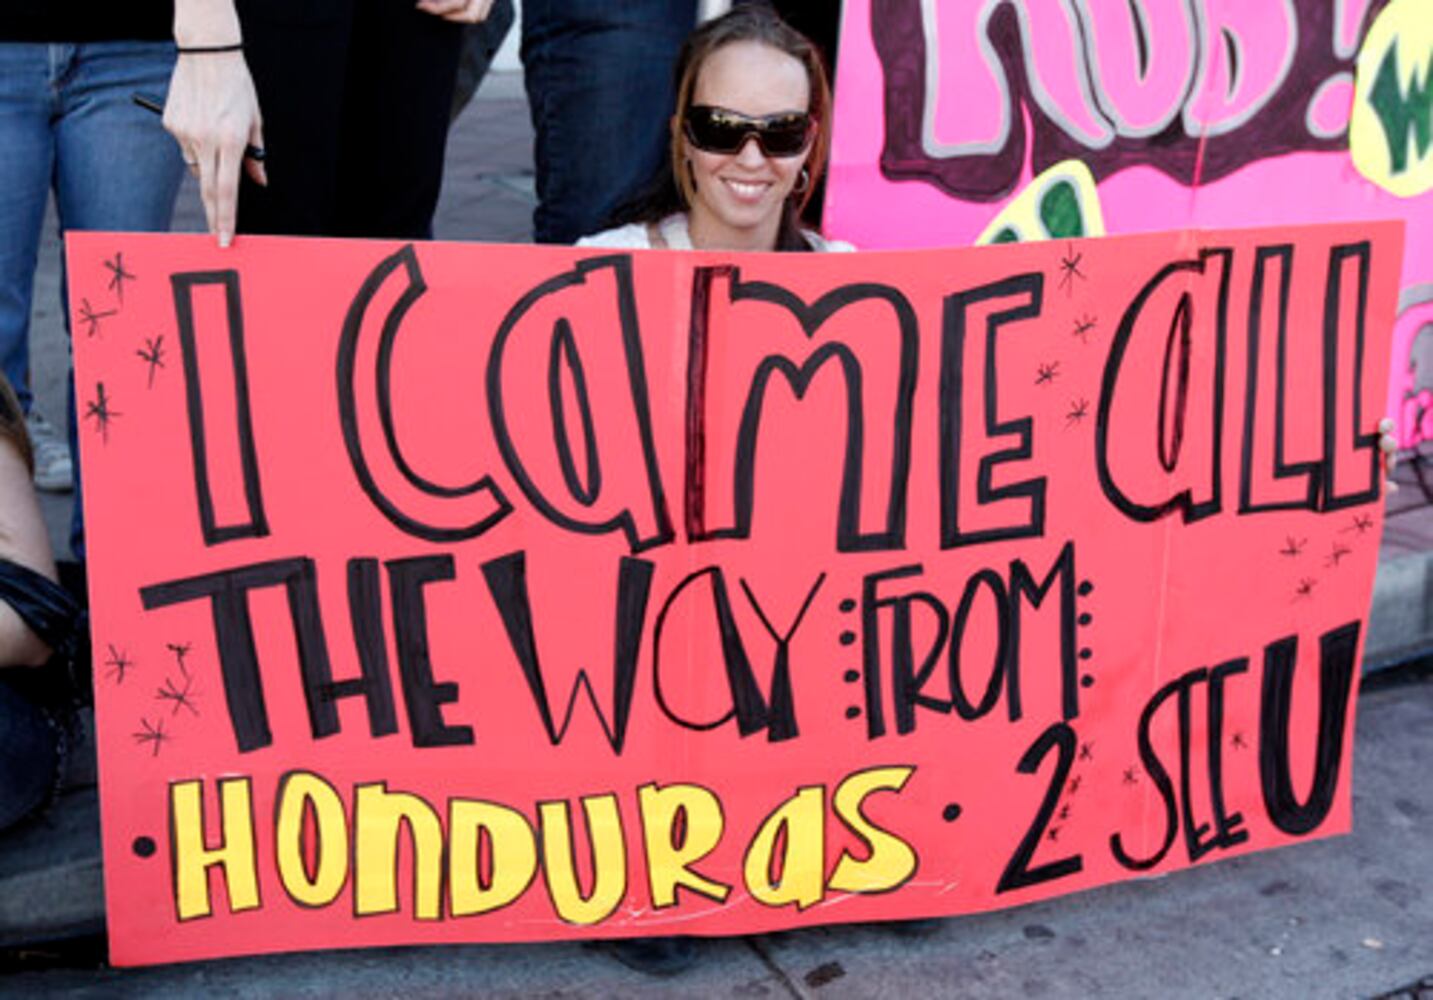 I CAME ALL
THE WAY FROM
HONDURAS 2 SEE U